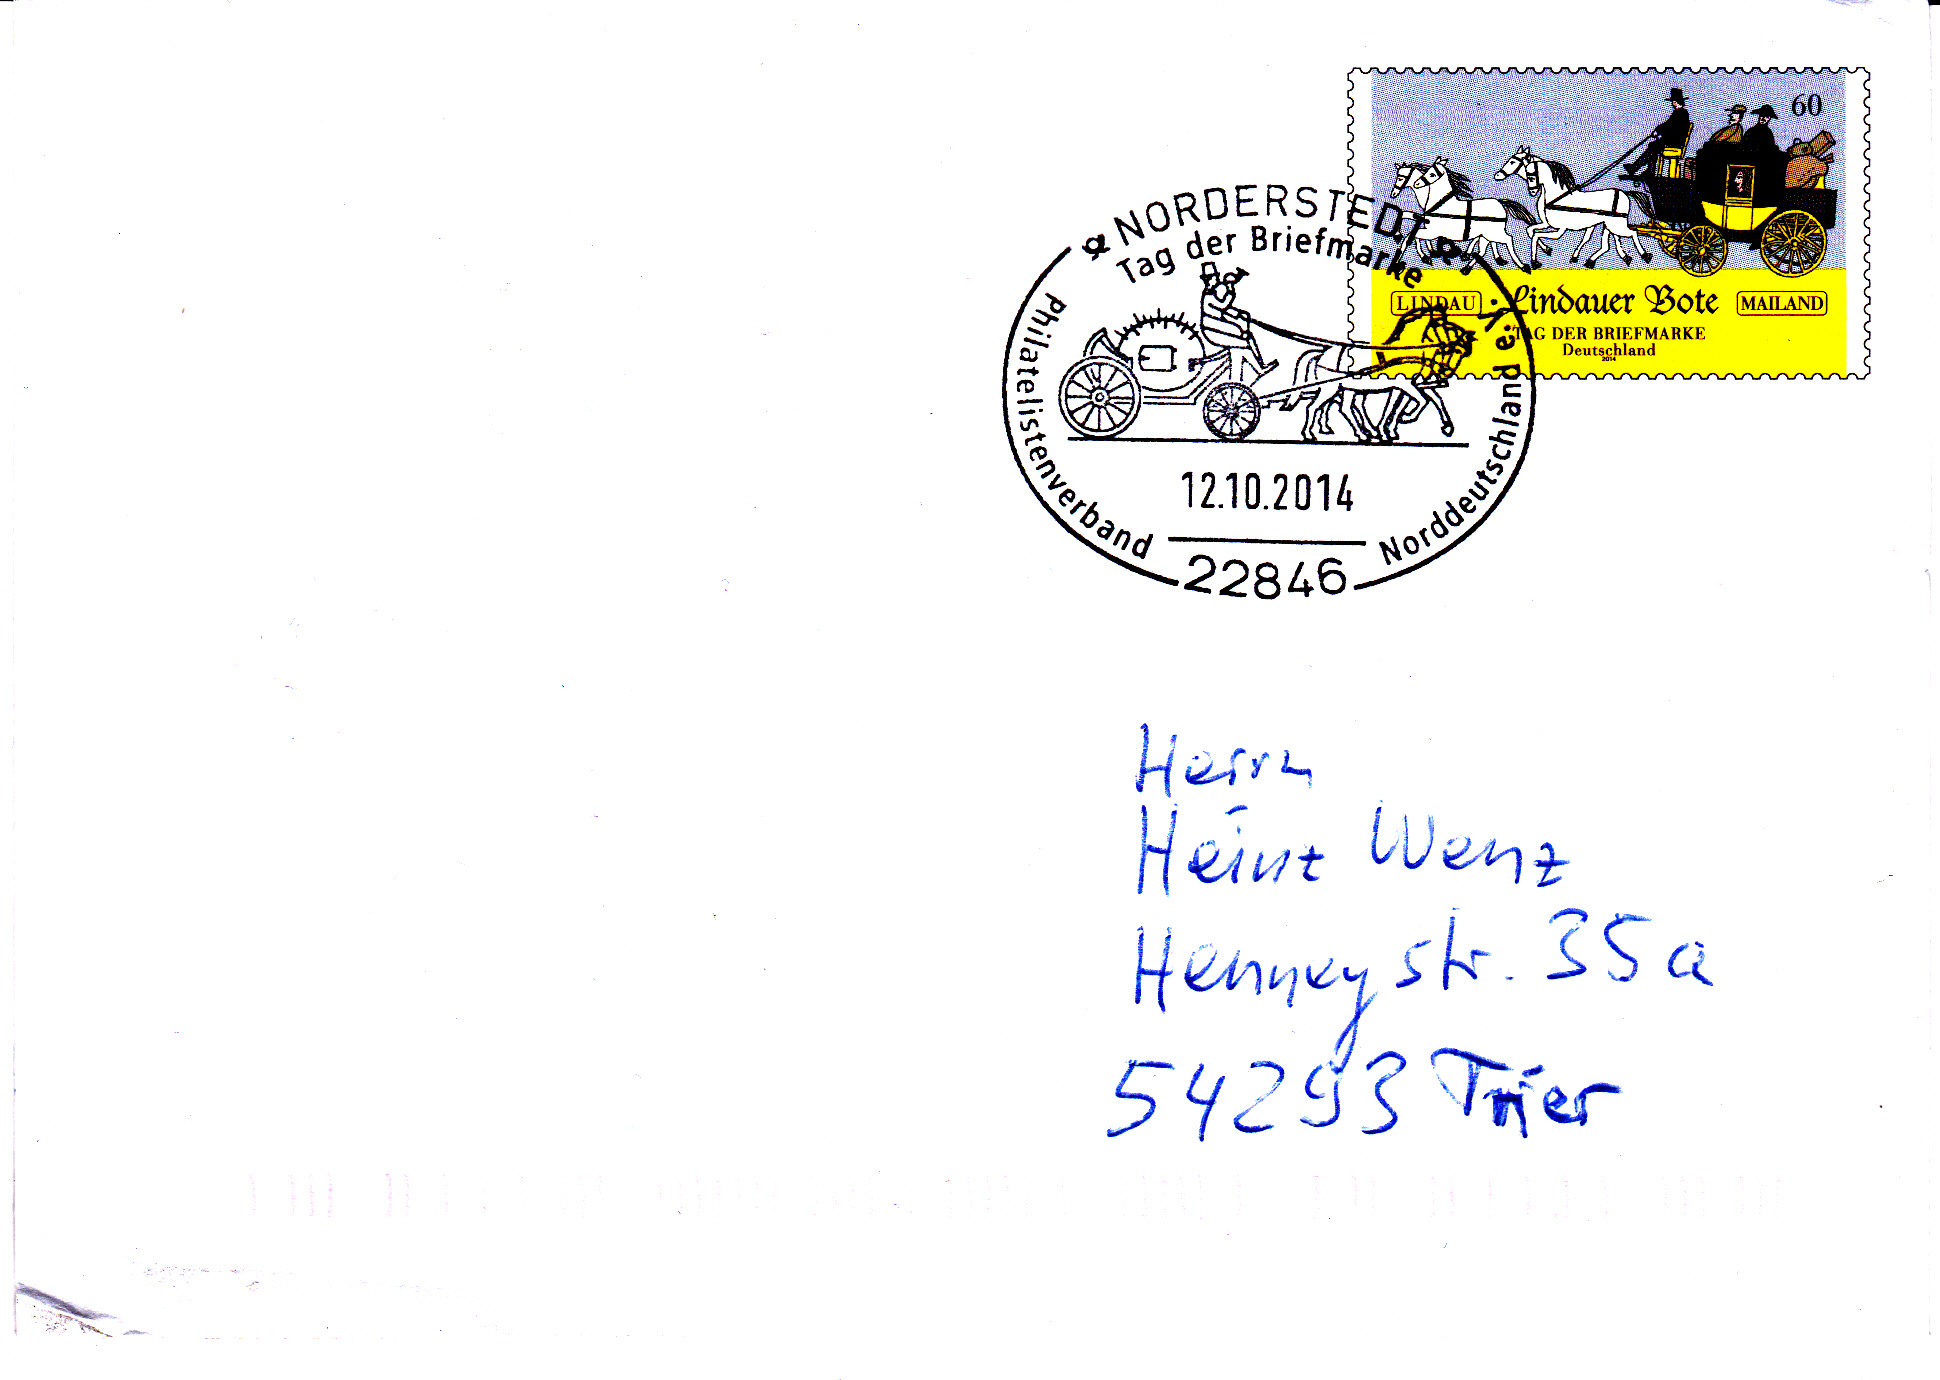 60
LINDAU Lindauer Bote MAILAND
TAG DER BRIEFMARKE
Deutschland
2014
NORDERSTEDT
Tag der Briefmarke
Philatelistenverband Norddeutschland e.V.
12.10.2014
22846
Herrn
Heinz Wenz
Henneystr. 35a
54293 Trier